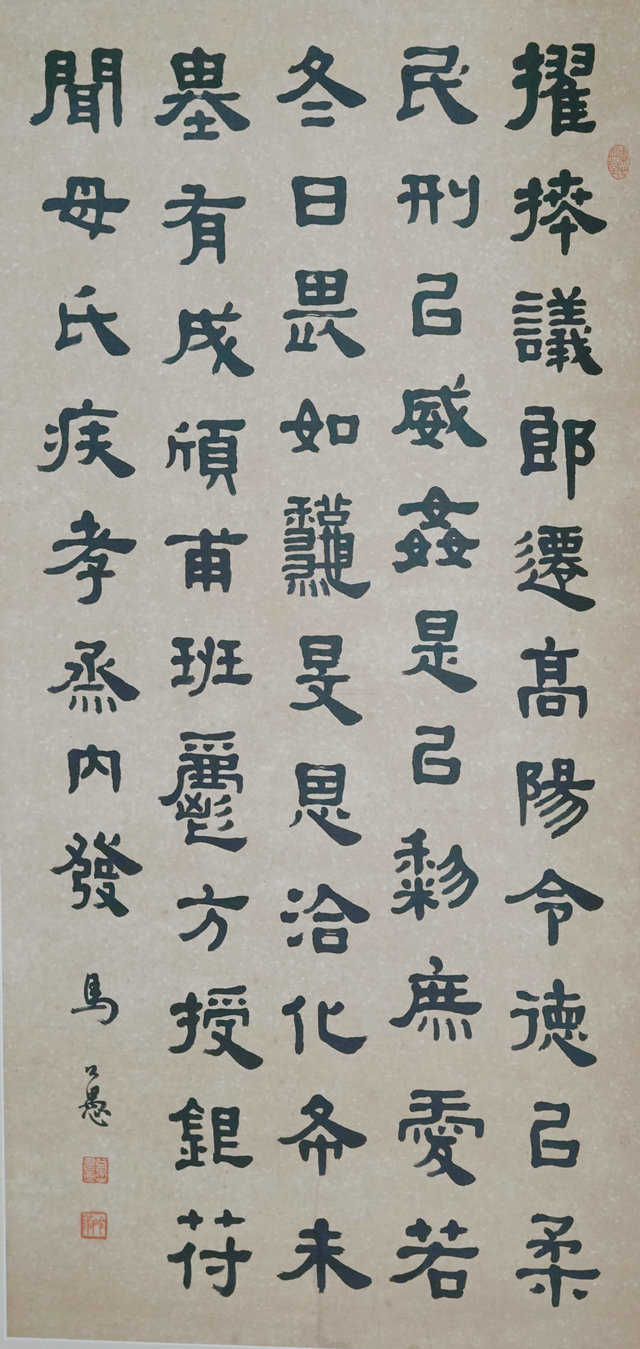 擢拜議郎遷高陽令德㠯柔
民刑㠯威姦是㠯黎庶愛若
冬日畏如龝旻恩洽化布未
基有成頎甫班爵方授銀苻
聞母氏疾孝烝內發
馬公愚